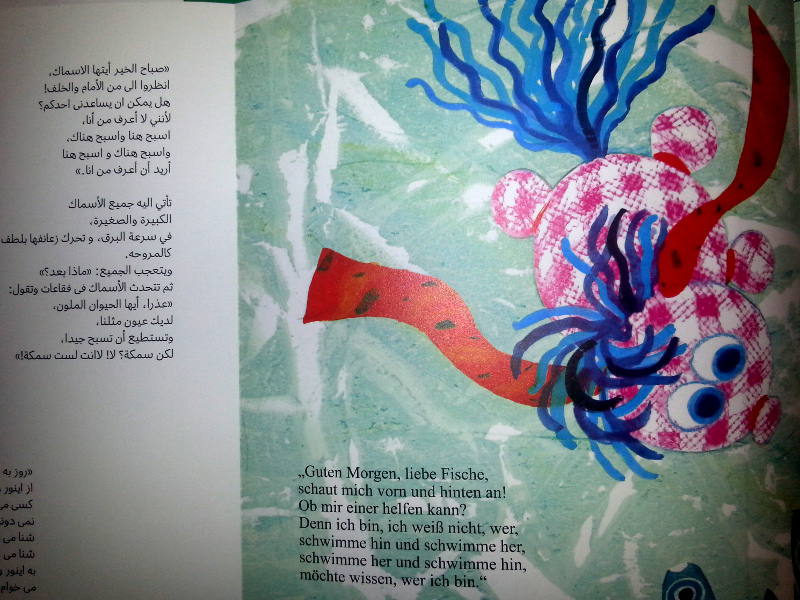 «صباح الخير أيتها الاسماك،
انظروا الى من الأمام والخلف!
هل يمكن ان يساعدنى احدكم؟
لأننى لا أعرف من أنا،
اسبح هنا واسبح هناك،
واسبح هناك و اسبح هنا
أريد أن أعرف من انا.»
تأتي اليه جميع الأسماك
الكبيرة والصغيرة،
في سرعة البرق، و تحرك زعانفها بلطف
كالمروحه.
ويتعجب الجميع: «ماذا بعد؟»
ثم تتحدث الأسماك فى فقاعات وتقول:
«عذرا، أيها الحيوان الملون،
لديك عيون مثلنا،
وتستطيع أن تسبح جيدا،
لكن سمكة؟ لا! لاانت لست سمكة!»
«روز به
از اینور
کسی می
نمی دونم
شنا می
شنا می
به اینور و
می خوام
„Guten Morgen, liebe Fische,
schaut mich vorn und hinten an!
Ob mir einer helfen kann?
Denn ich bin, ich weiß nicht, wer,
schwimme hin und schwimme her,
schwimme her und schwimme hin,
möchte wissen, wer ich bin.“